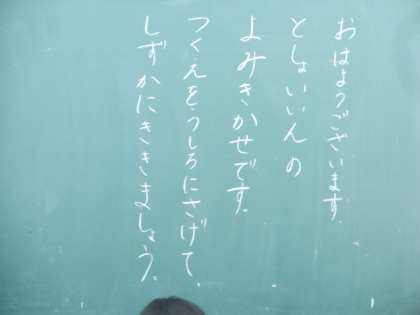 おはようございます.
としょいいんの
よみきかせです.
つくえをうしろにさげて、
しずかにききましょう。